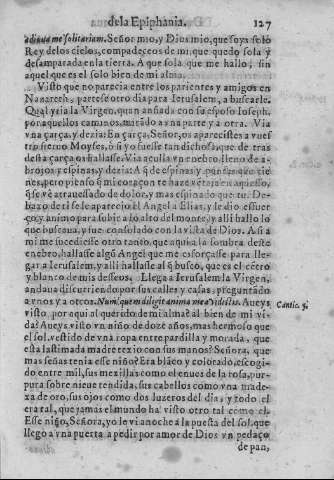 de la Epiphania. 127
adiuua me solitariam. Señor mio, y Dios mio, que soys solo
Rey de los cielos, compadeceos de mi, que quedo sola y
desamparada en la tierra. A que sola que me hallo, sin
aquel que es el solo bien de mi alma.
Visto que no parecia entre los parientes y amigos en
Nazareth, partese otro dia para Ierusalem, a buscarle.
Qual yria la Virgen, quan ansiada con su esposo Ioseph,
por aquellos caminos, mirādo a vna parte y a otra. Via
vna çarça, y dezia: En çarça, Señor, os aparecistes a vues
tro sieruo Moyses, ô si yo fuesse tan dichosa, que de tras
desta çarça os hallasse. Via aculla vn enebro lleno de a-
brojos y espinas, y dezia: A q̃ de espinas y puntas que tie
nes, pero pienso q̃ mi coraçon te haze vētaja en aquesso,
q̃ se vè atrauessado de dolor, y mas espinado que tu. De-
baxo de ti se le aparecio el Angel a Elias, y le dio esfuer
ço, y animo para subir a lo alto del monte, y alli hallo lo
que buscaua, y fue consolado con la vista de Dios. Assi a
mi me sucediesse otro tanto, que aqui a la sombra deste
enebro, hallasse algū Angel que me esforçasse para lle-
gar a Ierusalem, y alli hallasse al q̃ busco, que es el cētro
y blanco de mis desseos. Llega a Ierusalem la Virgen,
andaua discurriendo por sus calles y casas, preguntādo
a vnos y a otros. Num quem diligit anima mea vidistis. Aueys
Cantic. 3.
visto por aqui al querido de mi alma? al bien de mi vi-
da? Aueys visto vn niño de doze años, mas hermoso que
el sol, vestido de vna ropa entre pardilla y morada, que
esta lastimada madre texio con sus manos? Señora, que
mas señas tenia esse niño? Era blāco y colorado, escogi-
do entre mil, sus mexillas como el enues de la rosa, pur-
pura sobre nieue tendida, sus cabellos como vna made-
xa de oro, sus ojos como dos luzeros del dia, y todo el
era tal, que jamas el mundo ha visto otro tal como el.
Esse niño, Señora, yo le vi anoche a la puesta del sol, que
llego a vna puerta a pedir por amor de Dios vn pedaço
de pan,